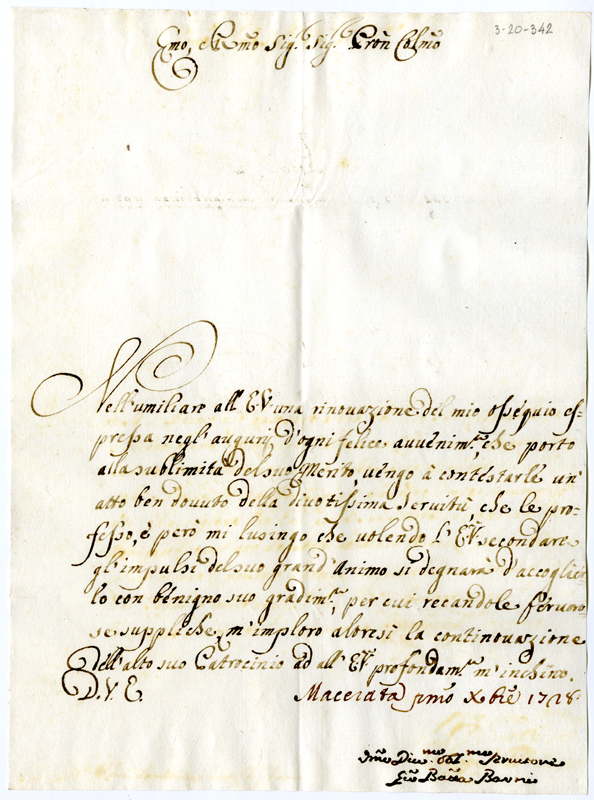 3-20-342
Emo, e Rmo Sig.r Sig.r Pron Colmo
Nell'umiliare all' EV una rinovazione del mio osséquio es=
pressa negl' augurj d'ogni felice auuénim.to che porto
alla sublimità del suo Mérito, uéngo à contéstarle un'
atto ben douuto della diuotissima seruitù, che le pro=
fesso, è però mi lusingo che uolendo l' EV secondare
gl' impulsi del suo grand' Animo si degnarà d'accoglier
lo con bénigno suo gradim.to, per cui recandole féruoro
se suppliche, m'imploro altresì la continouazione
dell'alto suo Patrocinio ad all' EV profondam.te m' inchino.
D. V. E. Macerata pmo Xbre 1728
Vmo Diu.mo Obl.mo Seruitore
Gio Batta